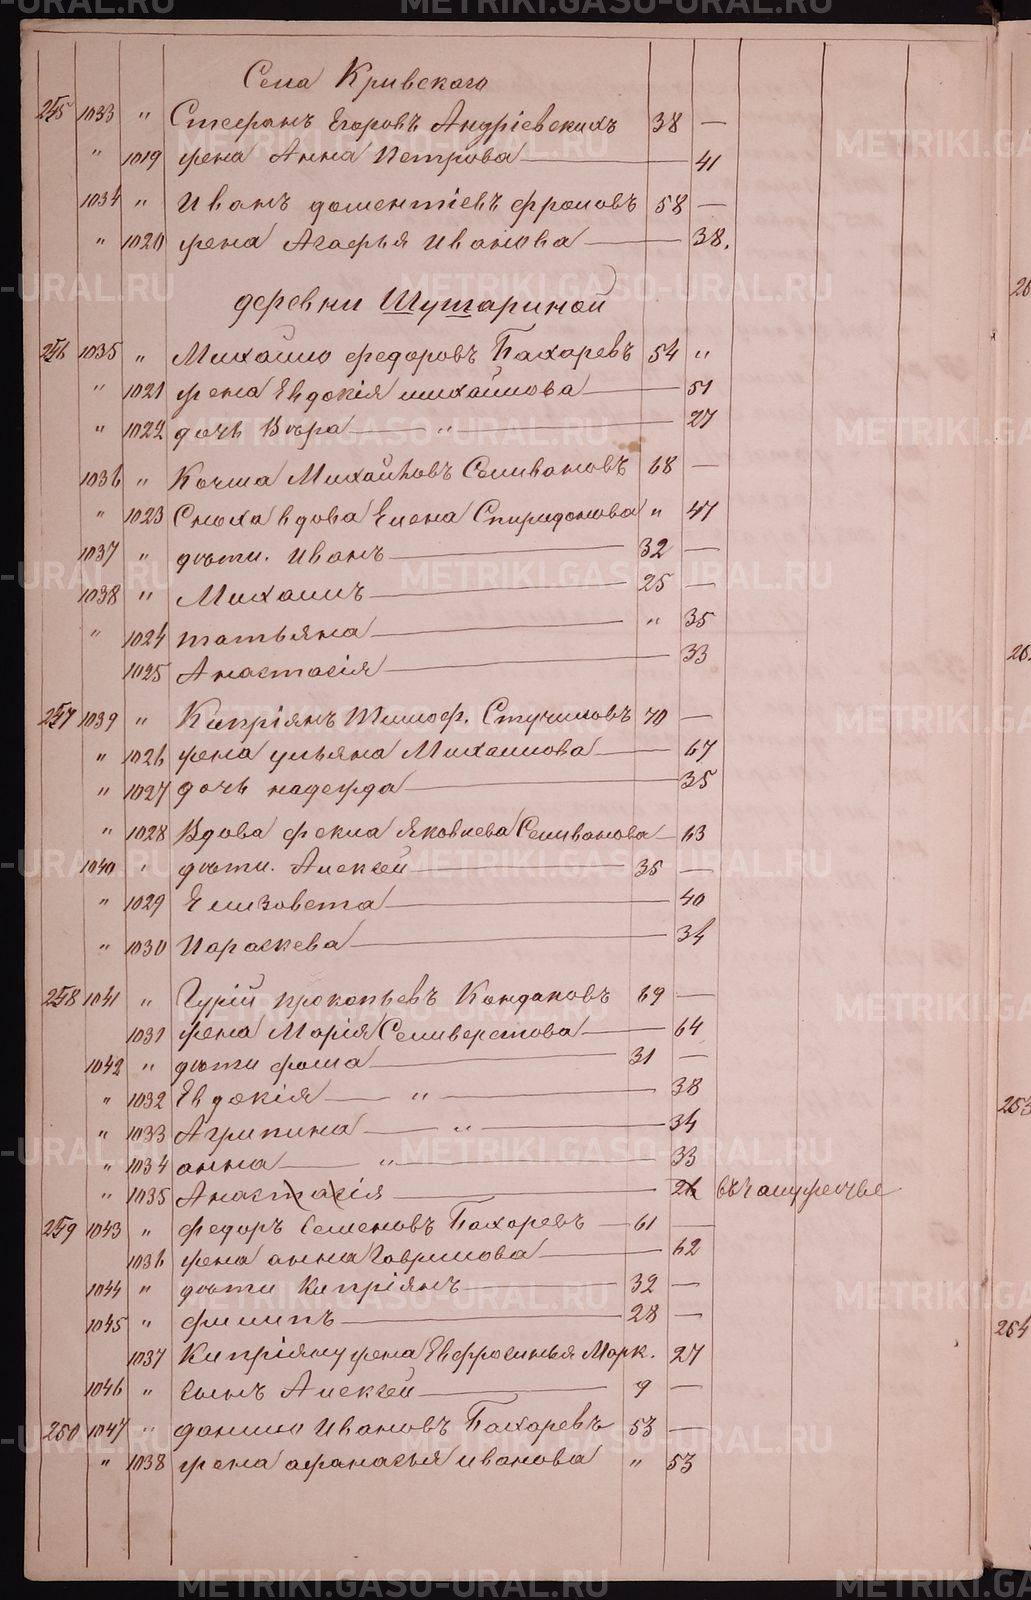 Села Кривскаго
255 1033 " Стефанъ Егоровъ Андріевскихъ 38 —
" 1019 жена Анна Петрова — 41
1034 " Иванъ доментіевъ фроловъ 58 —
" 1020 жена Агафья Иванова — 38.
деревни Шутариной
256 1035 " Михайло федоровъ Пахаревъ 54 "
" 1021 жена Евдокія михайлова — 51
" 1022 дочь Вѣра — " — 27
1036 " Козма Михайловъ Селивановъ 68 —
" 1023 Сноха вдова Елена Спиридонова " 47
1037 " дѣти. Иванъ — 32 —
1038 " Михаилъ — 25 —
" 1024 татьяна — " 35
1025 Анастасія — 33
257 1039 " Кипріянъ Тимоф. Стучиловъ 70 —
" 1026 жена ульяна Михаилова — 67
" 1027 дочь надежда — 35
" 1028 Вдова фекла Яковлева Селиванова — 63
1040 " дѣти. Алексѣй — 35 —
" 1029 Елизовета — 40
" 1030 Параскева — 34
258 1041 " Гурій прокопьевъ Кондаковъ 69 —
1031 жена Марія Селиверстова — 64
1042 " дѣти фома — 31 —
" 1032 Евдокія — " — 38
" 1033 Агрипина — " — 34
" 1034 анна — " — 33
" 1035 Анастасія — 26 въ замужествѣ
259 1043 " федоръ Семеновъ Пахаревъ — 61 —
1036 жена анна Гаврилова — 62
1044 " дѣти Кипріянъ — 32 —
1045 " филипъ — 28 —
1037 Кипріяну жена Евфросинья Марк. 27
1046 " сынъ Алексѣй — 9 —
260 1047 " данило Ивановъ Пахаревъ 53 —
" 1038 жена афанасья иванова " 53
263
264
METRIKI.GASO-URAL.RU